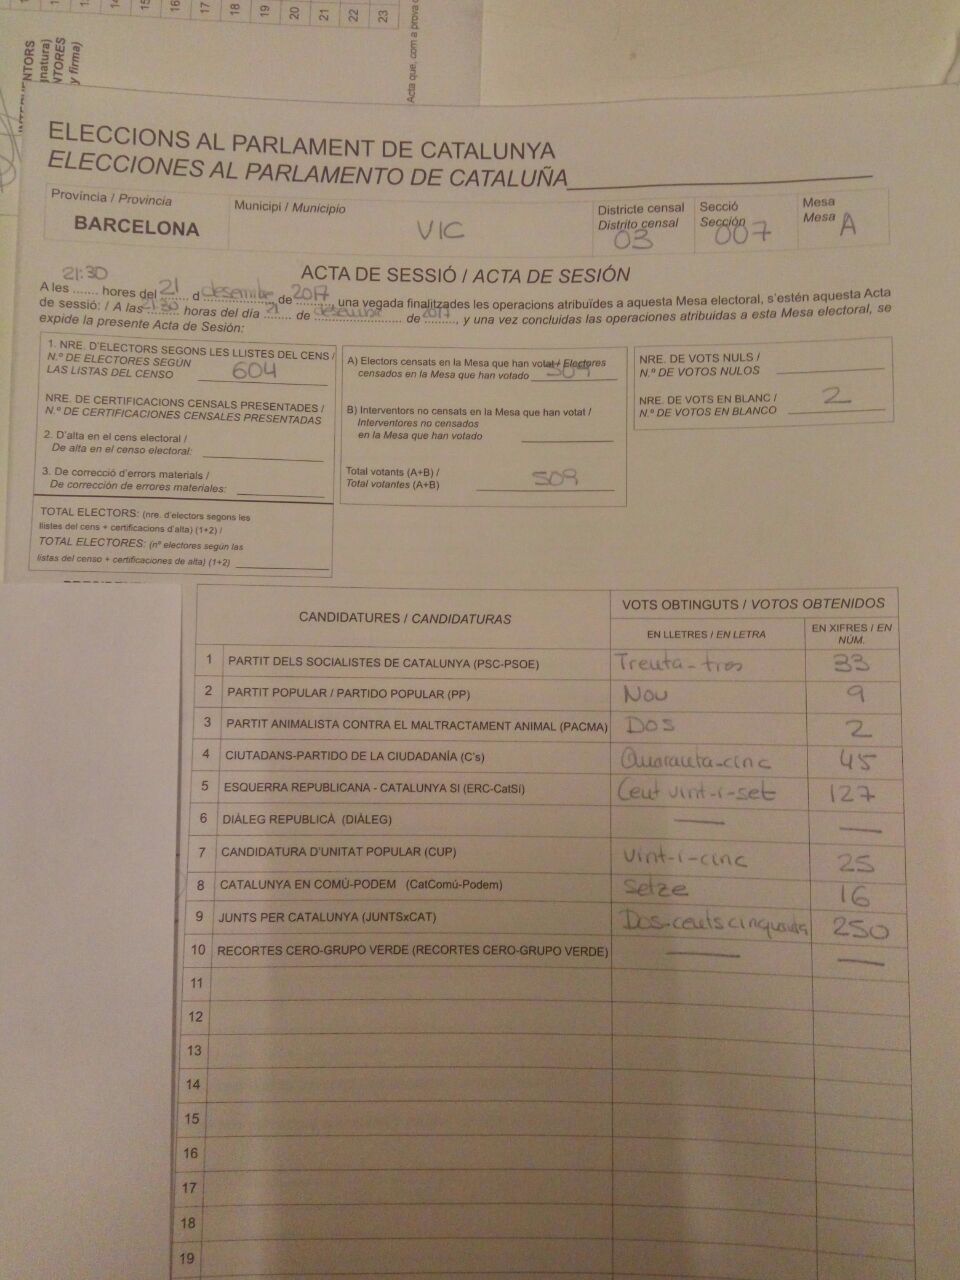 13
14
15
16
17
18
19
20
21
22
23
Acta que, com a prova
INTERVENTORS
NTORES
y firma)
ELECCIONS AL PARLAMENT DE CATALUNYA
ELECCIONES AL PARLAMENTO DE CATALUÑA
Província / Provincia
BARCELONA
Municipi / Municipio
VIC
Districte censal
Distrito censal
03
Secció
Sección
007
Mesa
Mesa
A
ACTA DE SESSIÓ / ACTA DE SESIÓN
21:30
A les ....... hores del 21 d desembre de 2017 una vegada finalitzades les operacions atribuïdes a aquesta Mesa electoral, s'estén aquesta Acta
de sessió: / A las 21:30 horas del día 21 de desembre de 2017, y una vez concluidas las operaciones atribuidas a esta Mesa electoral, se
expide la presente Acta de Sesión:
1. NRE. D'ELECTORS SEGONS LES LLISTES DEL CENS /
N.º DE ELECTORES SEGÚN
LAS LISTAS DEL CENSO 604
NRE. DE CERTIFICACIONS CENSALS PRESENTADES /
N.º DE CERTIFICACIONES CENSALES PRESENTADAS
2. D'alta en el cens electoral /
De alta en el censo electoral:
3. De correcció d'errors materials /
De corrección de errores materiales:
TOTAL ELECTORS: (nre. d'electors segons les
llistes del cens + certificacions d'alta) (1+2) /
TOTAL ELECTORES: (nº electores según las
listas del censo + certificaciones de alta) (1+2)
A) Electors censats en la Mesa que han votat / Electores
censados en la Mesa que han votado 509
B) Interventors no censats en la Mesa que han votat /
Interventores no censados
en la Mesa que han votado
Total votants (A+B) /
Total votantes (A+B) 509
NRE. DE VOTS NULS /
N.º DE VOTOS NULOS
NRE. DE VOTS EN BLANC /
N.º DE VOTOS EN BLANCO 2
CANDIDATURES / CANDIDATURAS
VOTS OBTINGUTS / VOTOS OBTENIDOS
EN LLETRES / EN LETRA
EN XIFRES / EN
NÚM.
1 PARTIT DELS SOCIALISTES DE CATALUNYA (PSC-PSOE) Trenta-tres 33
2 PARTIT POPULAR / PARTIDO POPULAR (PP) Nou 9
3 PARTIT ANIMALISTA CONTRA EL MALTRACTAMENT ANIMAL (PACMA) Dos 2
4 CIUTADANS-PARTIDO DE LA CIUDADANÍA (C's) Quaranta-cinc 45
5 ESQUERRA REPUBLICANA - CATALUNYA SI (ERC-CatSí) Cent vint-i-set 127
6 DIÀLEG REPUBLICÀ (DIÀLEG) — —
7 CANDIDATURA D'UNITAT POPULAR (CUP) vint-i-cinc 25
8 CATALUNYA EN COMÚ-PODEM (CatComú-Podem) Setze 16
9 JUNTS PER CATALUNYA (JUNTSxCAT) Dos-cents cinquanta 250
10 RECORTES CERO-GRUPO VERDE (RECORTES CERO-GRUPO VERDE) — —
11
12
13
14
15
16
17
18
19